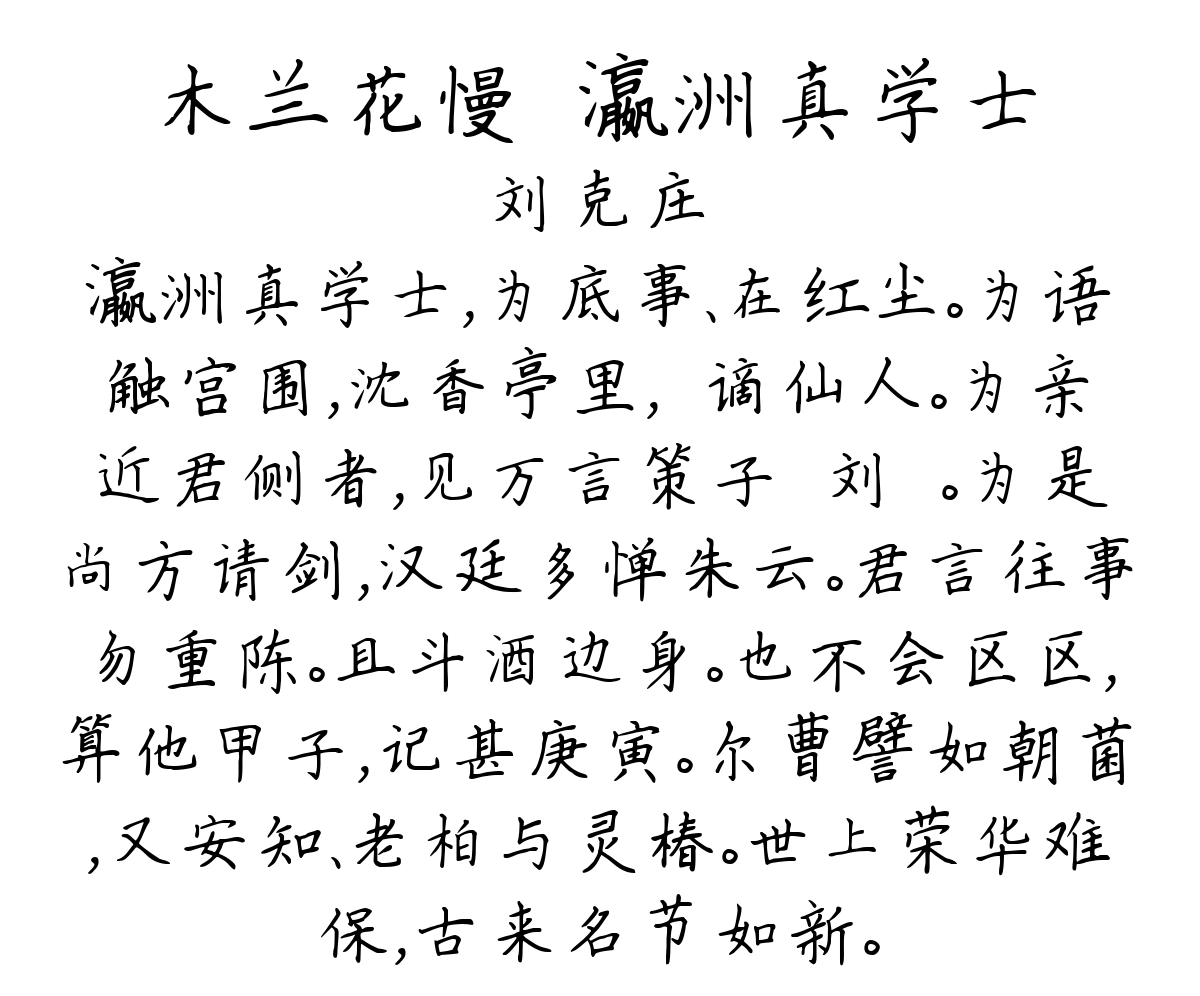 木兰花慢 瀛洲真学士
刘克庄
瀛洲真学士,为底事、在红尘。为语
触宫围,沈香亭里, 谪仙人。为亲
近君侧者,见万言策子 刘 。为是
尚方请剑,汉廷多惮朱云。君言往事
勿重陈。且斗酒边身。也不会区区,
算他甲子,记甚庚寅。尔曹譬如朝菌
,又安知、老柏与灵椿。世上荣华难
保,古来名节如新。